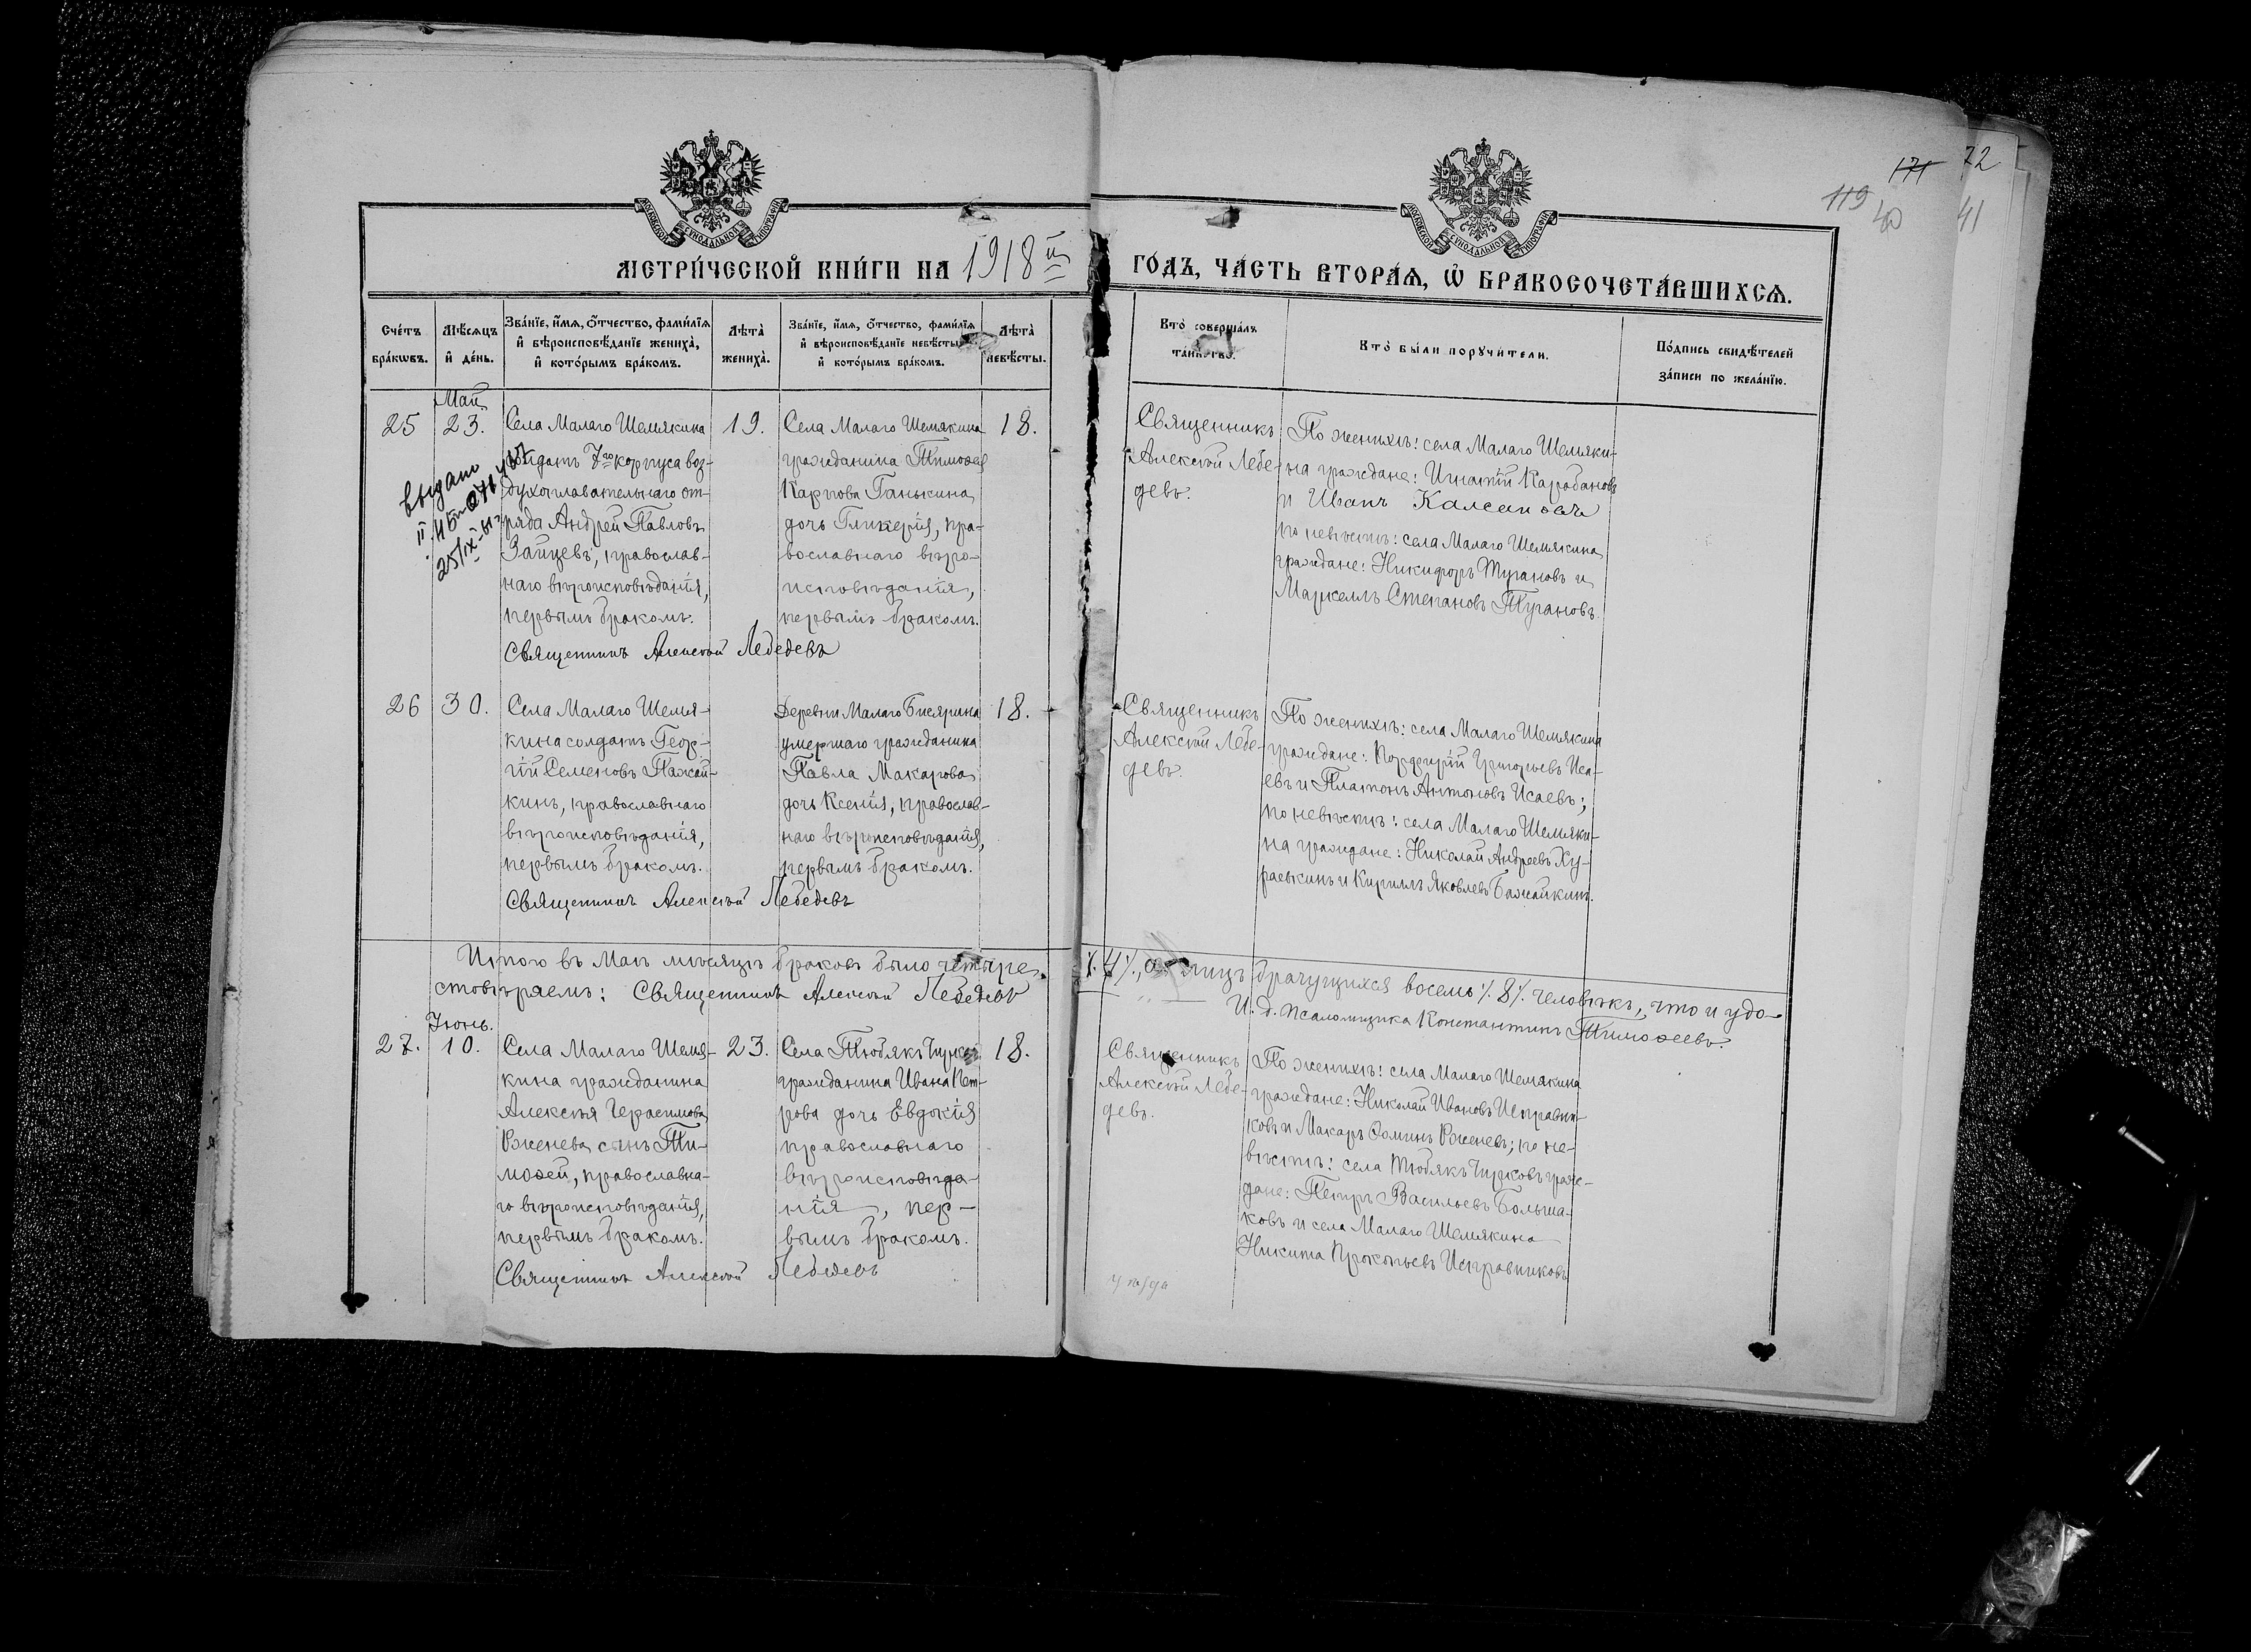 171 72
119 40 41
МОСКОВСКОЙ СѴНОДАЛЬНОЙ ТИПОГРАФІИ
МОСКОВСКОЙ СѴНОДАЛЬНОЙ ТИПОГРАФІИ
МЕТРИ́ЧЕСКОЙ КНИ́ГИ НА 1918й ГО́ДЪ, ЧА́СТЬ ВТОРА́Ѧ, Ѡ҆ БРАКОСОЧЕТА́ВШИХСѦ.
Сче́тъ бра́кѡвъ.
Мѣ́сяцъ и҆ де́нь.
Зва́нїе, и҆́мѧ, ѻ҆́тчество, фами́лїѧ и҆ вѣроисповѣ́данїе жениха̀, и҆ кото́рымъ бра́комъ.
Лѣта̀ жениха̀.
Зва́нїе, и҆́мѧ, ѻ҆́тчество, фами́лїѧ и҆ вѣроисповѣ́данїе невѣ́сты, и҆ кото́рымъ бра́комъ.
Лѣта̀ невѣ́сты.
Кто̀ соверша́лъ та́инство.
Кто̀ бы́ли порꙋчи́тели.
По́дпись свидѣ́телей за́писи по жела́нїю.
Май
25
23.
Села Малаго Шемякина
солдатъ 7го корпуса воз-
духоплавательнаго от-
ряда Андрей Павловъ
Зайцевъ, православ-
наго вѣроисповѣданія,
первымъ бракомъ.
19.
Села Малаго Шемякина
гражданина Тимоѳея
Карпова Ганькина
дочь Гликерія, пра-
вославнаго вѣро-
исповѣданія,
первымъ бракомъ.
18.
Священникъ Алексѣй Лебедевъ
выдано
Священникъ
Алексѣй Лебе-
девъ.
По женихѣ: села Малаго Шемяки-
на граждане: Игнатій Карабановъ
и Иванъ
по невѣстѣ: села Малаго Шемякина
граждане: Никифоръ Тугановъ и
Маркеллъ Степановъ Тугановъ.
26
30.
Села Малаго Шемя-
кина солдатъ Геор-
гій Семеновъ Пажай-
кинъ, православнаго
вѣроисповѣданія,
первымъ бракомъ.
Деревни Малаго Бисярина
умершаго гражданина
Павла Макарова
дочь Ксенія, православ-
наго вѣроисповѣданія,
первымъ бракомъ.
18.
Священникъ Алексѣй Лебедевъ
Священникъ
Алексѣй Лебе-
девъ.
По женихѣ: села Малаго Шемякина
граждане: Порфирій Григорьевъ Иса-
евъ и Платонъ Антоновъ Исаевъ;
по невѣстѣ: села Малаго Шемяки-
на граждане: Николай Андреевъ Ху-
раськинъ и Кириллъ Яковлевъ Бажайкинъ.
Итого въ Маѣ мѣсяцѣ браковъ было четыре ⁒4⁒, а лицъ брачущихся восемь ⁒8⁒ человѣкъ, что и удо-
стовѣряемъ: Священникъ Алексѣй Лебедевъ
И. д. псаломщика Константинъ Тимоѳеевъ.
Іюнь.
27.
10.
Села Малаго Шемя-
кина гражданина
Алексѣя Герасимова
Рженева сынъ Ти-
моѳей, православна-
го вѣроисповѣданія,
первымъ бракомъ.
23.
Села Тюбякъ Чирково
гражданина Ивана Пет-
рова дочь Евдокія
православнаго
вѣроисповѣда-
нія, пер-
вымъ бракомъ.
18.
Священникъ Алексѣй Лебедевъ
Священникъ
Алексѣй Лебе-
девъ.
По женихѣ: села Малаго Шемякина
граждане: Николай Ивановъ Исправни-
ковъ и Макаръ Ѳоминъ Рженевъ; по не-
вѣстѣ: села Тюбякъ Чирковъ граж-
дане: Петръ Васильевъ Больша-
ковъ и села Малаго Шемякина
Никита Прокопьевъ Исправниковъ